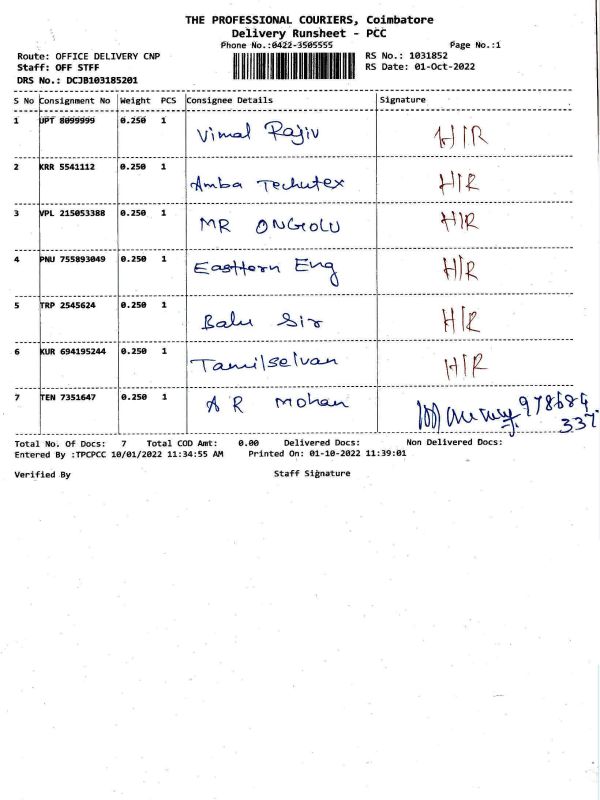 THE PROFESSIONAL COURIERS, Coimbatore
Delivery Runsheet - PCC
Phone No.:0422-3505555 Page No.:1
Route: OFFICE DELIVERY CNP RS No.: 1031852
Staff: OFF STFF RS Date: 01-Oct-2022
DRS No.: DCJB103185201
S No Consignment No Weight PCS Consignee Details Signature
1 UPT 8099999 0.250 1 Vimal Rajiv H/R
2 KRR 5541112 0.250 1 Amba Techutex H/R
3 VPL 215053388 0.250 1 MR ONGOLU H/R
4 PNU 755893049 0.250 1 Easthorn Eng H/R
5 TRP 2545624 0.250 1 Balu Sir H/R
6 KUR 694195244 0.250 1 Tamilselvan H/R
7 TEN 7351647 0.250 1 A R Mohan 978684
337
Total No. Of Docs: 7 Total COD Amt: 0.00 Delivered Docs: Non Delivered Docs:
Entered By :TPCPCC 10/01/2022 11:34:55 AM Printed On: 01-10-2022 11:39:01
Verified By Staff Signature